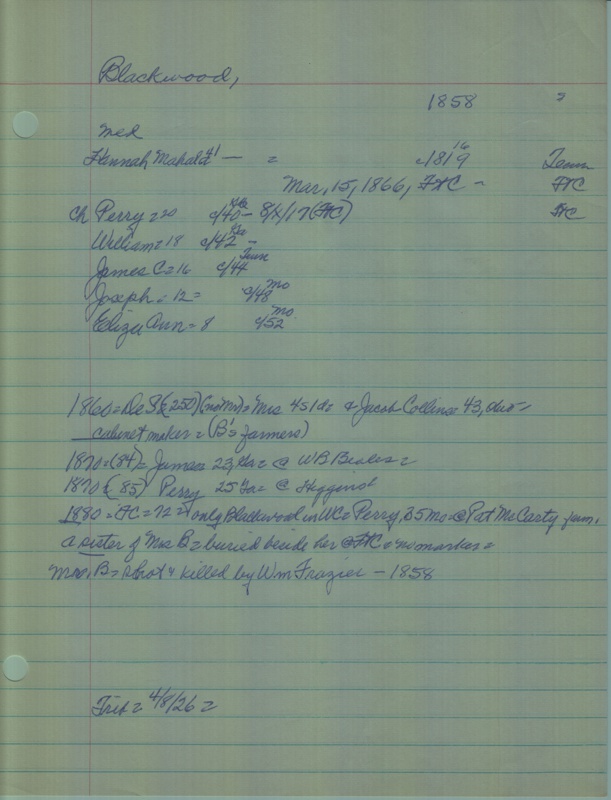 Blackwood,
1858 =
med
Hannah Mahala 41 — = c1819 16 Tenn
Mar, 15, 1866, FXC — FXC
ch Perry = 20 c/40 — 8/X/17 (FXC) FXC
William = 18 c/42 —
James C = 16 c/44 Tenn
Joseph = 12 = c/48 Mo
Eliza Ann = 8 c/52 Mo
1860 = De Sk (250) (no Mr) = Mrs 45 & Jacob Collins 43,
cabinet maker = (B's farmers)
1870 = (84) = James = 23, = @ W B Beales =
1870 = (85) Perry 25 = @ Higgins
1880 = FC = 72 = only Blackwood in WC = Perry, 35 Mo = @ Pat McCarty fam.
a sister of Mrs B = buried beside her @ FXC = no marker =
Mr. B = shot & killed by Wm Frazier — 1858
4/8/26 =